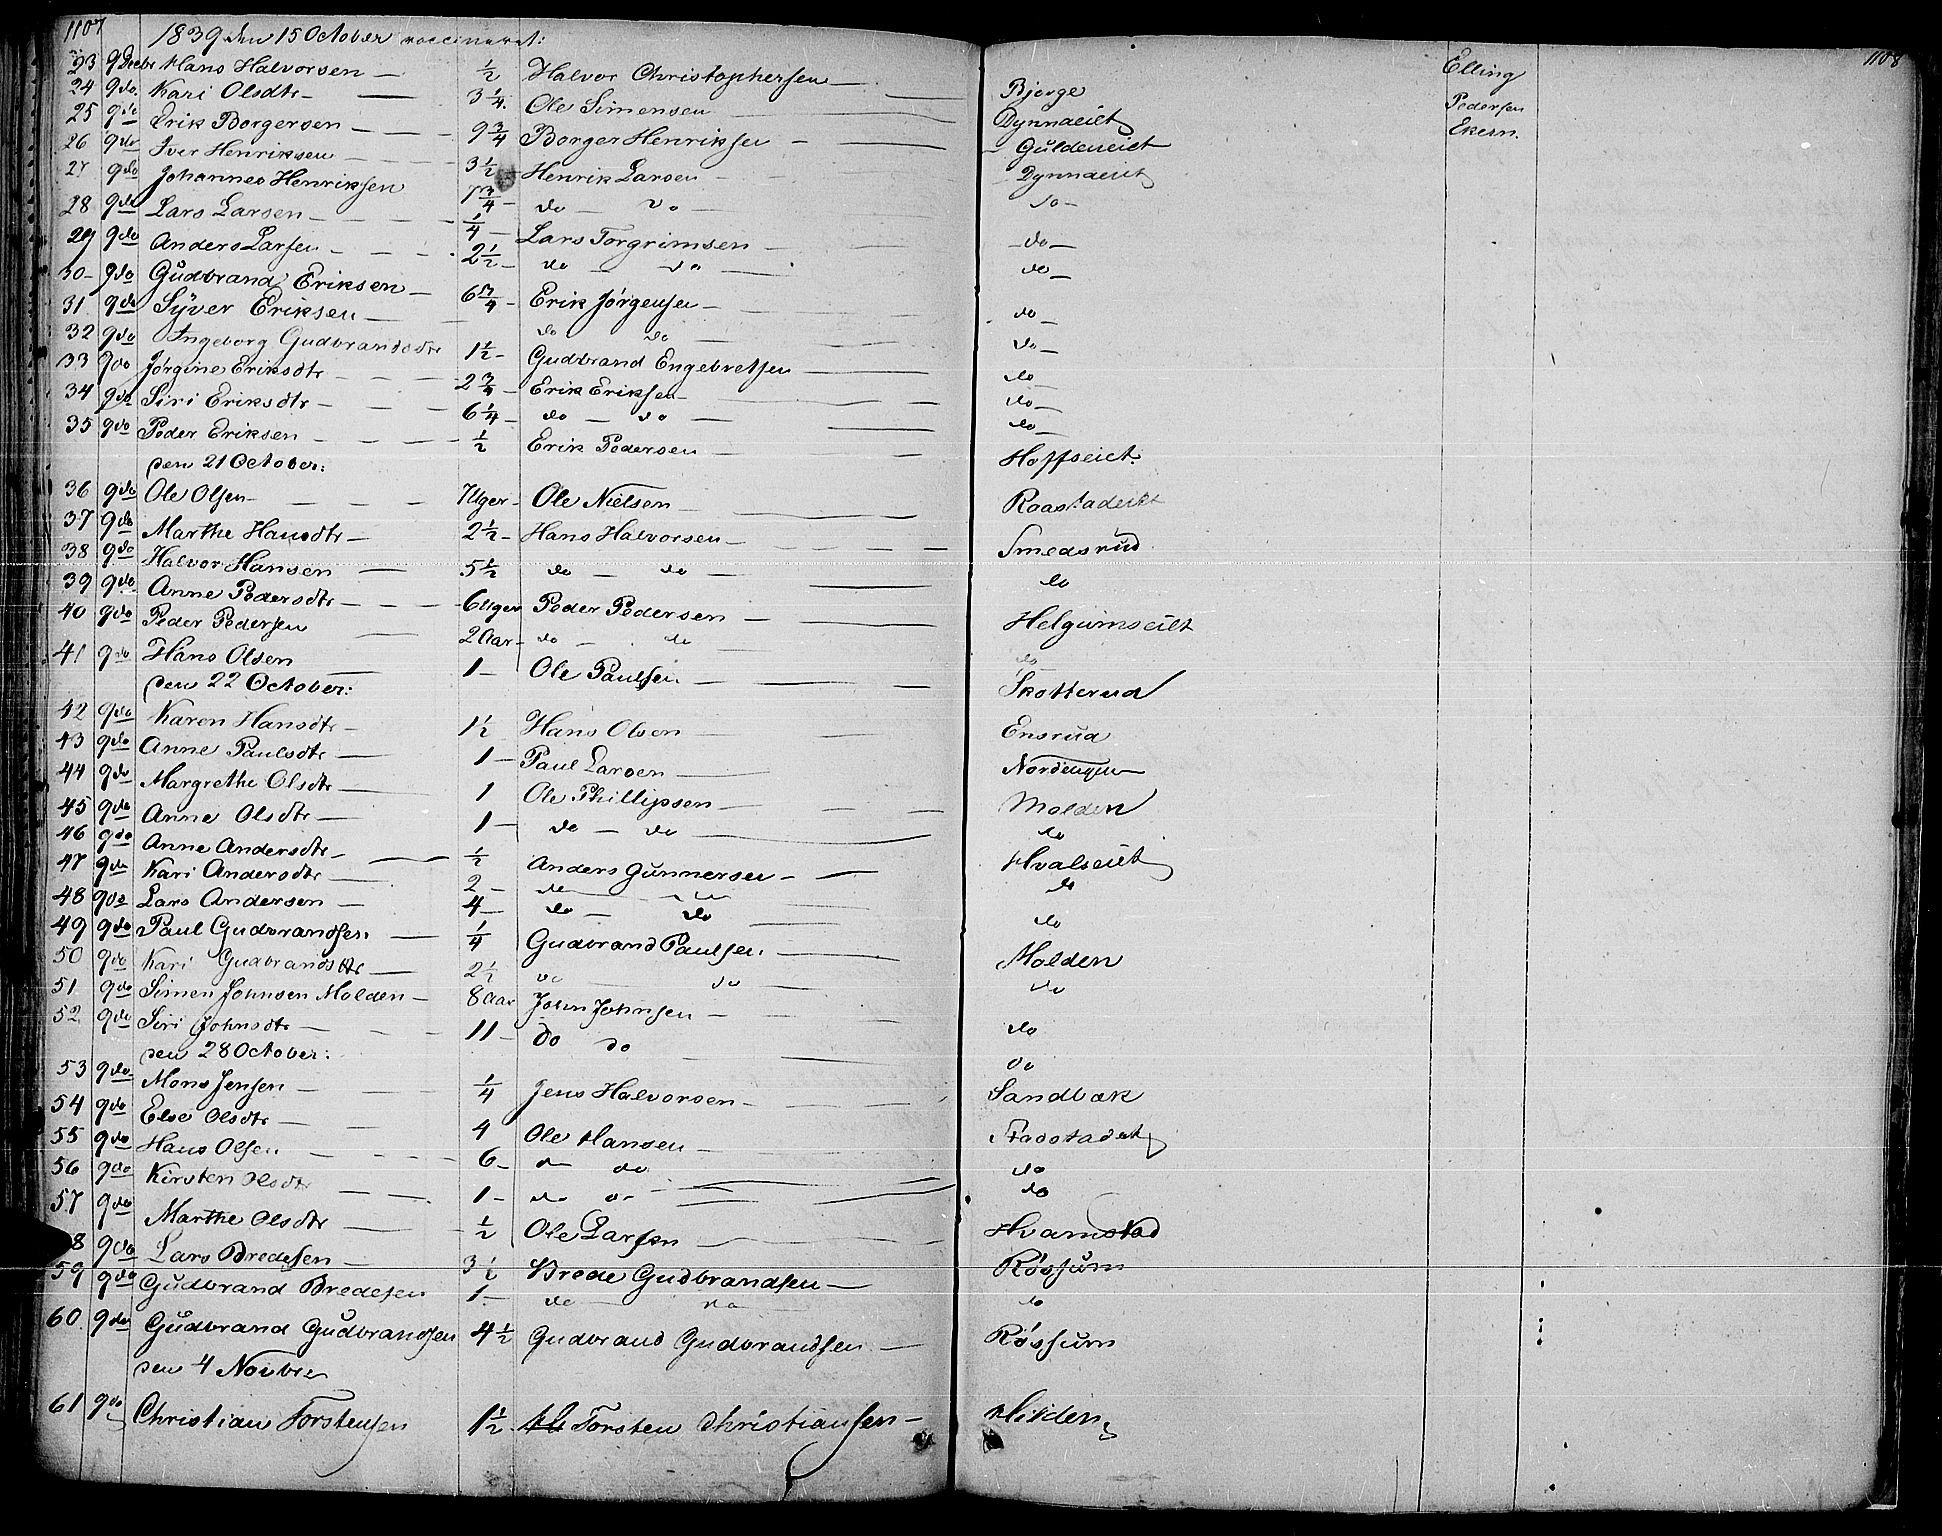 1107
1839 den 15 October vaccineret:
23 9 Decbr Hans Halvorsen — 1/2 Halvor Christophersen — Bjerge Elling
24 9 do Kari Olsdtr — 3 1/4 Ole Simensen — Dynnaeiet Pedersen
25 9 do Erik Borgersen — 9 3/4 Borger Henriksen — Guldeneiet Ekern
26 9 do Iver Henriksen — 3 1/2 Henrik Larsen — Dynnaeiet
27 9 do Johannes Henriksen 7 3/4 do — do — do —
28 9 do Lars Larsen — 1/4 Lars Torgrimsen — do —
29 9 do Anders Larsen — 2 1/2 do — do — do —
30 9 do Gudbrand Eriksen — 6 3/4 Erik Jörgensen — do —
31 9 do Syver Eriksen — do do do —
32 9 do Ingeborg Gudbrandsdtr 1 1/2 Gudbrand Engebretsen — do —
33 9 do Jörgine Eriksdtr — 2 3/4 Erik Eriksen — do —
34 9 do Siri Eriksdtr — 6 1/4 do — do — do —
35 9 do Peder Eriksen — 1/2 Erik Pedersen — Hoffseiet
den 21 October:
36 9 do Ole Olsen — 7 Uger Ole Nielsen — Raastadeiet
37 9 do Marthe Hansdtr — 2 1/2 Hans Halvorsen — Smedsrud
38 9 do Halvor Hansen — 5 1/2 do — do — do
39 9 do Anne Pedersdtr — 6 Uger Peder Pedersen — Helgumseiet
40 9 do Peder Pedersen — 2 Aar do — do do
41 9 do Hans Olsen — 1 — Ole Paulsen — Skotterud
den 22 October:
42 9 do Karen Hansdtr — 1 1/2 Hans Olsen — Ensrud
43 9 do Anne Paulsdtr — 1 — Paul Larsen — Nordengen
44 9 do Margrethe Olsdtr — 1 Ole Phillipsen — Molden
45 9 do Anne Olsdtr — 1 — do — do — do
46 9 do Anne Andersdtr — 1/2 Anders Gunnersen — Hvalseiet
47 9 do Kari Andersdtr — 2 — do do do
48 9 do Lars Andersen — 4 — do — do do
49 9 do Paul Gudbrandsen — 1/4 Gudbrand Paulsen — Molden
50 9 do Kari Gudbrandsdtr — 2 1/2 do do do
51 9 do Simen Johnsen Molden — 8 Aar John Johnsen — do
52 9 do Siri Johnsdtr — 11 — do do do
den 28 October:
53 9 do Mons Jensen — 1/4 Jens Halvorsen — Sandbæk
54 9 do Else Olsdtr — 4 Ole Hansen —
55 9 do Hans Olsen — 6 — do do do
56 9 do Kirsten Olsdtr — 1 — do do do
57 9 do Marthe Olsdtr — 1/2 Ole Larsen — Hvamstad
8 9 do Lars Bredesen — 3 1/2 Brede Gudbrandsen — Røssum
59 9 do Gudbrand Bredesen 1 — do do do
60 9 do Gudbrand Gudbrandsen 4 1/2 Gudbrand Gudbrandsen — Røssum
den 4 Novbr
61 9 do Christian Torstensen 1 1/2 Torsten Christiansen — Hilden
1108